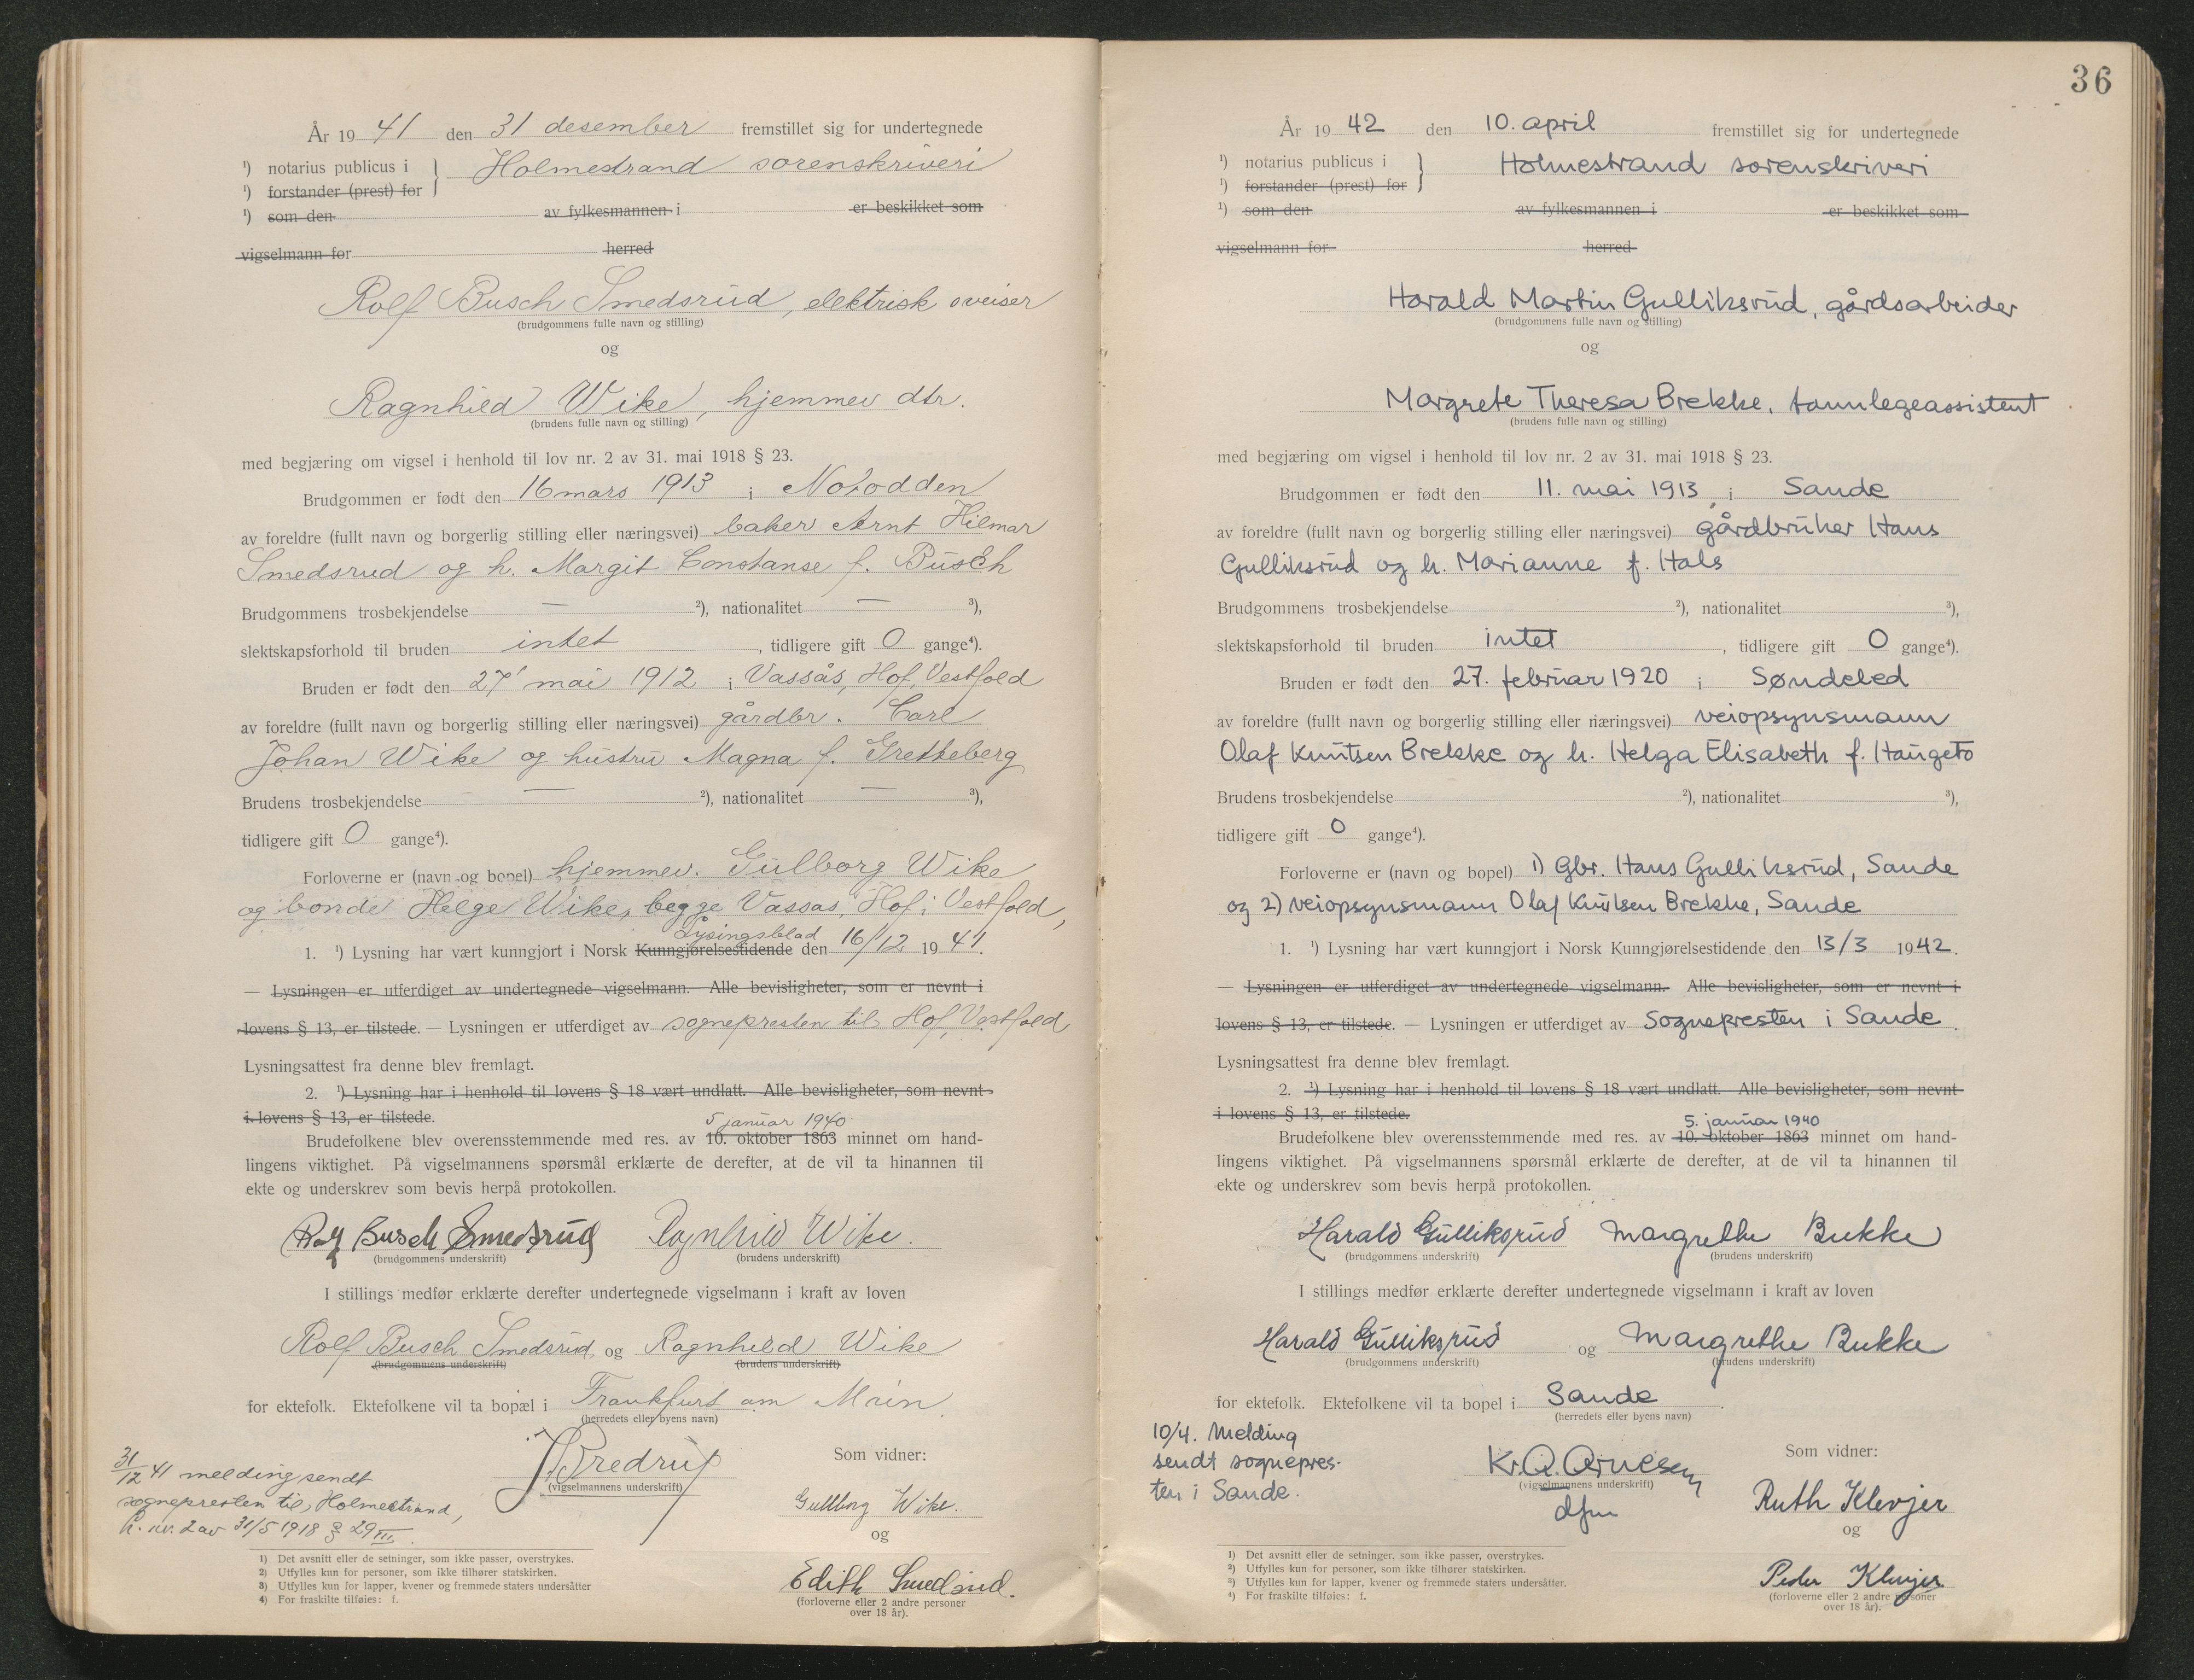 År 19 41 den 31 desember fremstillet sig for undertegnede
¹) notarius publicus i } Holmestrand sorenskriveri
¹) forstander (prest) for
¹) som den av fylkesmannen i er beskikket som
vigselmann for herred
Rolf Busch Smedsrud, elektrisk sveiser
(brudgommens fulle navn og stilling)
og
Ragnhild Wike, hjemmev dtr.
(brudens fulle navn og stilling)
med begjæring om vigsel i henhold til lov nr. 2 av 31. mai 1918 § 23.
Brudgommen er født den 16 mars 1913 i Notodden
av foreldre (fullt navn og borgerlig stilling eller næringsvei) baker Arnt Hilmar
Smedsrud og h. Margit Constanse f. Busch
Brudgommens trosbekjendelse — ²), nationalitet — ³),
slektskapsforhold til bruden intet, tidligere gift 0 gange⁴).
Bruden er født den 27 mai 1912 i Vassås, Hof, Vestfold
av foreldre (fullt navn og borgerlig stilling eller næringsvei) gårdbr. Carl
Johan Wike og hustru Magna f. Gretteberg
Brudens trosbekjendelse — ²), nationalitet — ³),
tidligere gift 0 gange⁴).
Forloverne er (navn og bopel) hjemmev. Gulborg Wike
og bonde Helge Wike, begge Vassas, Hof i Vestfold,
Lysingsblad
1. ¹) Lysning har vært kunngjort i Norsk Kunngjørelsestidende den 16/12 19 41.
— Lysningen er utferdiget av undertegnede vigselmann. Alle bevisligheter, som er nevnt i
lovens § 13, er tilstede. — Lysningen er utferdiget av sognepresten til Hof, Vestfold
Lysningsattest fra denne blev fremlagt.
2. ¹) Lysning har i henhold til lovens § 18 vært undlatt. Alle bevisligheter, som nevnt
i lovens § 13, er tilstede.
5 januar 1940
Brudefolkene blev overensstemmende med res. av 10. oktober 1863 minnet om hand-
lingens viktighet. På vigselmannens spørsmål erklærte de derefter, at de vil ta hinannen til
ekte og underskrev som bevis herpå protokollen.
Rolf Busch Smedsrud Ragnhild Wike.
(brudgommens underskrift) (brudens underskrift)
I stillings medfør erklærte derefter undertegnede vigselmann i kraft av loven
Rolf Busch Smedsrud og Ragnhild Wike
(brudgommens underskrift) (brudens underskrift)
for ektefolk. Ektefolkene vil ta bopæl i Frankfurt am Main
(herredets eller byens navn)
31/12 41 melding sendt
sognepresten til Holmestrand,
l. nr. 2 av 31/5 1918 § 29 III.
Bredrup
(vigselmannens underskrift)
Som vidner:
Gullborg Wike.
og
Edith Smedsrud.
(forloverne eller 2 andre personer
over 18 år).
1) Det avsnitt eller de setninger, som ikke passer, overstrykes.
2) Utfylles kun for personer, som ikke tilhører statskirken.
3) Utfylles kun for lapper, kvener og fremmede staters undersåtter
4) For fraskilte tilføies: f.
36
År 19 42 den 10. april fremstillet sig for undertegnede
¹) notarius publicus i } Holmestrand sorenskriveri
¹) forstander (prest) for
¹) som den av fylkesmannen i er beskikket som
vigselmann for herred
Harald Martin Gulliksrud, gårdsarbeider
(brudgommens fulle navn og stilling)
og
Margrete Theresa Brekke, tannlegeassistent
(brudens fulle navn og stilling)
med begjæring om vigsel i henhold til lov nr. 2 av 31. mai 1918 § 23.
Brudgommen er født den 11. mai 1913 i Sande
av foreldre (fullt navn og borgerlig stilling eller næringsvei) gårdbruker Hans
Gulliksrud og h. Marianne f. Hals
Brudgommens trosbekjendelse ²), nationalitet ³),
slektskapsforhold til bruden intet, tidligere gift 0 gange⁴).
Bruden er født den 27. februar 1920 i Søndeled
av foreldre (fullt navn og borgerlig stilling eller næringsvei) veiopsynsmann
Olaf Knutsen Brekke og h. Helga Elisabeth f. Haugeto
Brudens trosbekjendelse ²), nationalitet ³),
tidligere gift 0 gange⁴).
Forloverne er (navn og bopel) 1) Gbr. Hans Gulliksrud, Sande
og 2) veiopsynsmann Olaf Knutsen Brekke, Sande
1. ¹) Lysning har vært kunngjort i Norsk Kunngjørelsestidende den 13/3 1942.
— Lysningen er utferdiget av undertegnede vigselmann. Alle bevisligheter, som er nevnt i
lovens § 13, er tilstede. — Lysningen er utferdiget av Sognepresten i Sande.
Lysningsattest fra denne blev fremlagt.
2. ¹) Lysning har i henhold til lovens § 18 vært undlatt. Alle bevisligheter, som nevnt
i lovens § 13, er tilstede.
5. januar 1940
Brudefolkene blev overensstemmende med res. av 10. oktober 1863 minnet om hand-
lingens viktighet. På vigselmannens spørsmål erklærte de derefter, at de vil ta hinannen til
ekte og underskrev som bevis herpå protokollen.
Harald Gulliksrud Margrethe Brekke
(brudgommens underskrift) (brudens underskrift)
I stillings medfør erklærte derefter undertegnede vigselmann i kraft av loven
Harald Gulliksrud og Margrethe Brekke
(brudgommens underskrift) (brudens underskrift)
for ektefolk. Ektefolkene vil ta bopel i Sande.
(herredets eller byens navn)
10/4. Melding
sendt sognepres-
ten i Sande.
Kr. A. Arnesen
(vigselmannens underskrift)
dfm
Som vidner:
Ruth Klevjer
og
Peder Klevjer
(forloverne eller 2 andre personer
over 18 år).
¹) Det avsnitt eller de setninger, som ikke passer, overstrykes.
²) Utfylles kun for personer, som ikke tilhører statskirken.
³) Utfylles kun for lapper, kvener og fremmede staters undersåtter.
⁴) For fraskilte tilføies: f.